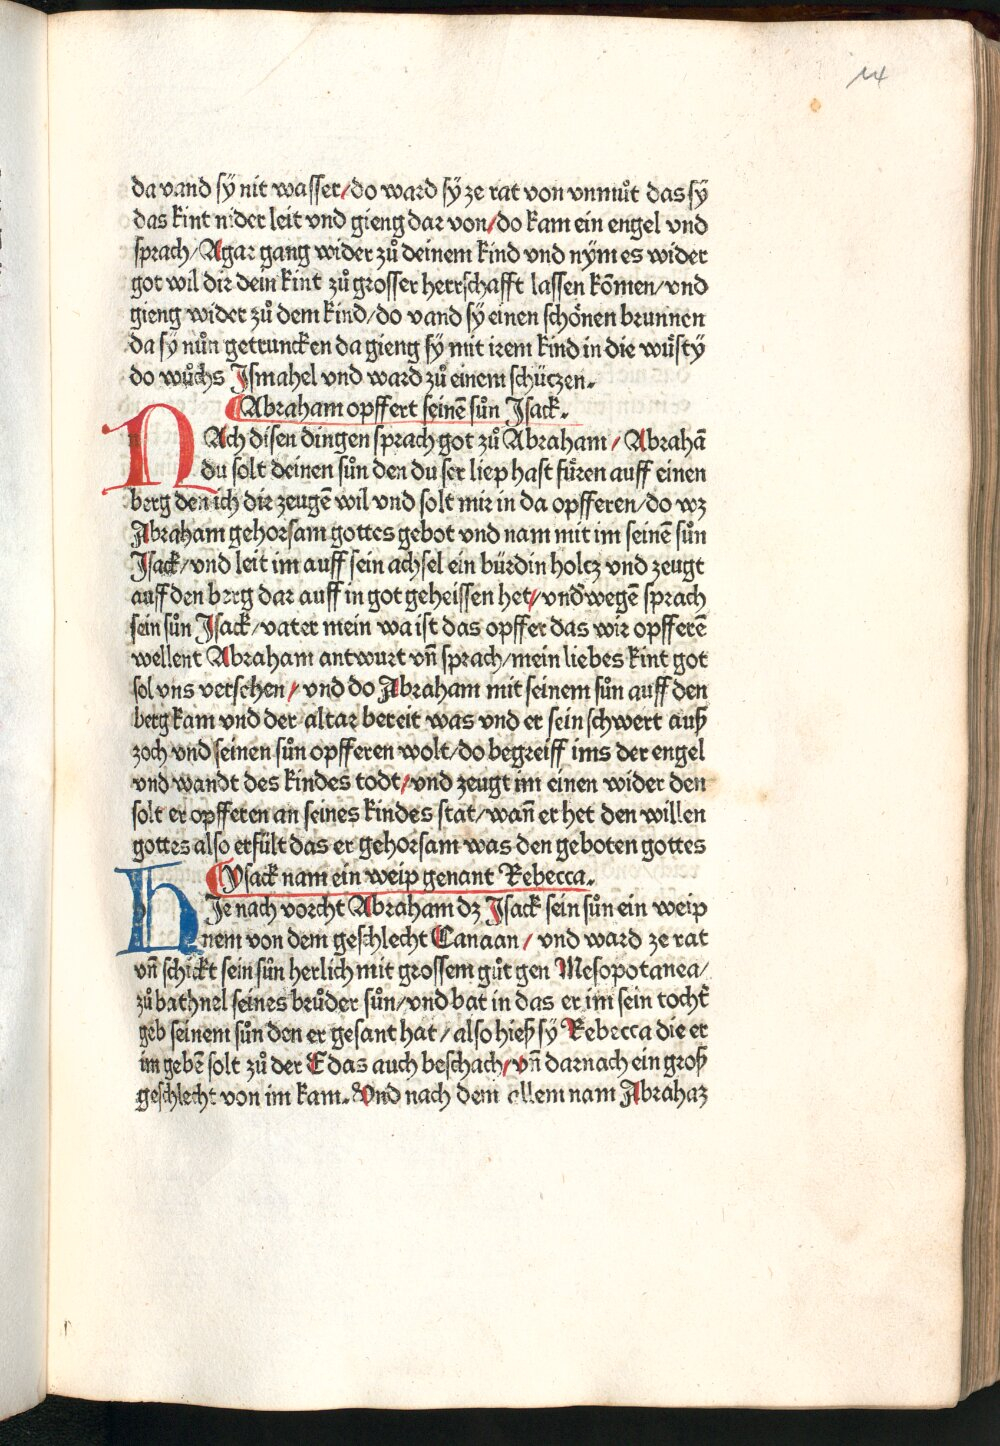 14
da vand sÿ nit wasser/do ward sÿ ze rat von vnmůt das sÿ
das kint nider leit vnd gieng dar von/do kam ein engel vnd
sprach/Agar gang wider zů deinem kind vnd nÿm es wider
got wil dir dein kint zů grosser herrschafft lassen kōmen/vnd
gieng wider zů dem kind/do vand sÿ einen schönen brunnen
da sÿ nůn getruncken da gieng sÿ mit irem kind in die wůsty
do wůchs Jsmahel vnd ward zů einem schützen.
Abraham opffert seinē sůn Jsack.
NAch disen dingen sprach got zů Abraham/Abrahā
du solt deinen sůn den du ser liep hast füren auff einen
berg den ich dir zeugē wil vnd solt mir in da opfferen/do wz
Abraham gehorsam gottes gebot vnd nam mit im seinē sůn
Jsack/vnd leit im auff sein achsel ein bürdin holcz vnd zeugt
auff den berg dar auff in got geheissen het/vnd wegē sprach
sein sůn Jsack/vater mein wa ist das opffer das wir opfferē
wellent Abraham antwurt vn̄ sprach/mein liebes kint got
sol vns versehen/vnd do Abraham mit seinem sůn auff den
berg kam vnd der altar bereit was vnd er sein schwert auß
zoch vnd seinen sůn opfferen wolt/do begreiff ims der engel
vnd wandt des kindes todt/vnd zeugt im einen wider den
solt er opfferen an seines kindes stat/wan̄ er het den willen
gottes also erfült das er gehorsam was den geboten gottes
Ysack nam ein weip genant Rebecca.
HJe nach vorcht Abraham dz Jsack sein sůn ein weip
nem von dem geschlecht Canaan/vnd ward ze rat
vn̄ schickt sein sůn herlich mit grossem gůt gen Mesopotanea/
zů bathuel seines brůder sůn/vnd bat in das er im sein tocht̄
geb seinem sůn den er gesant hat/also hieß sÿ Rebecca die er
im gebē solt zů der E das auch beschach/vn̄ darnach ein groß
geschlecht von im kam. Vnd nach dem allem nam Abrahaz